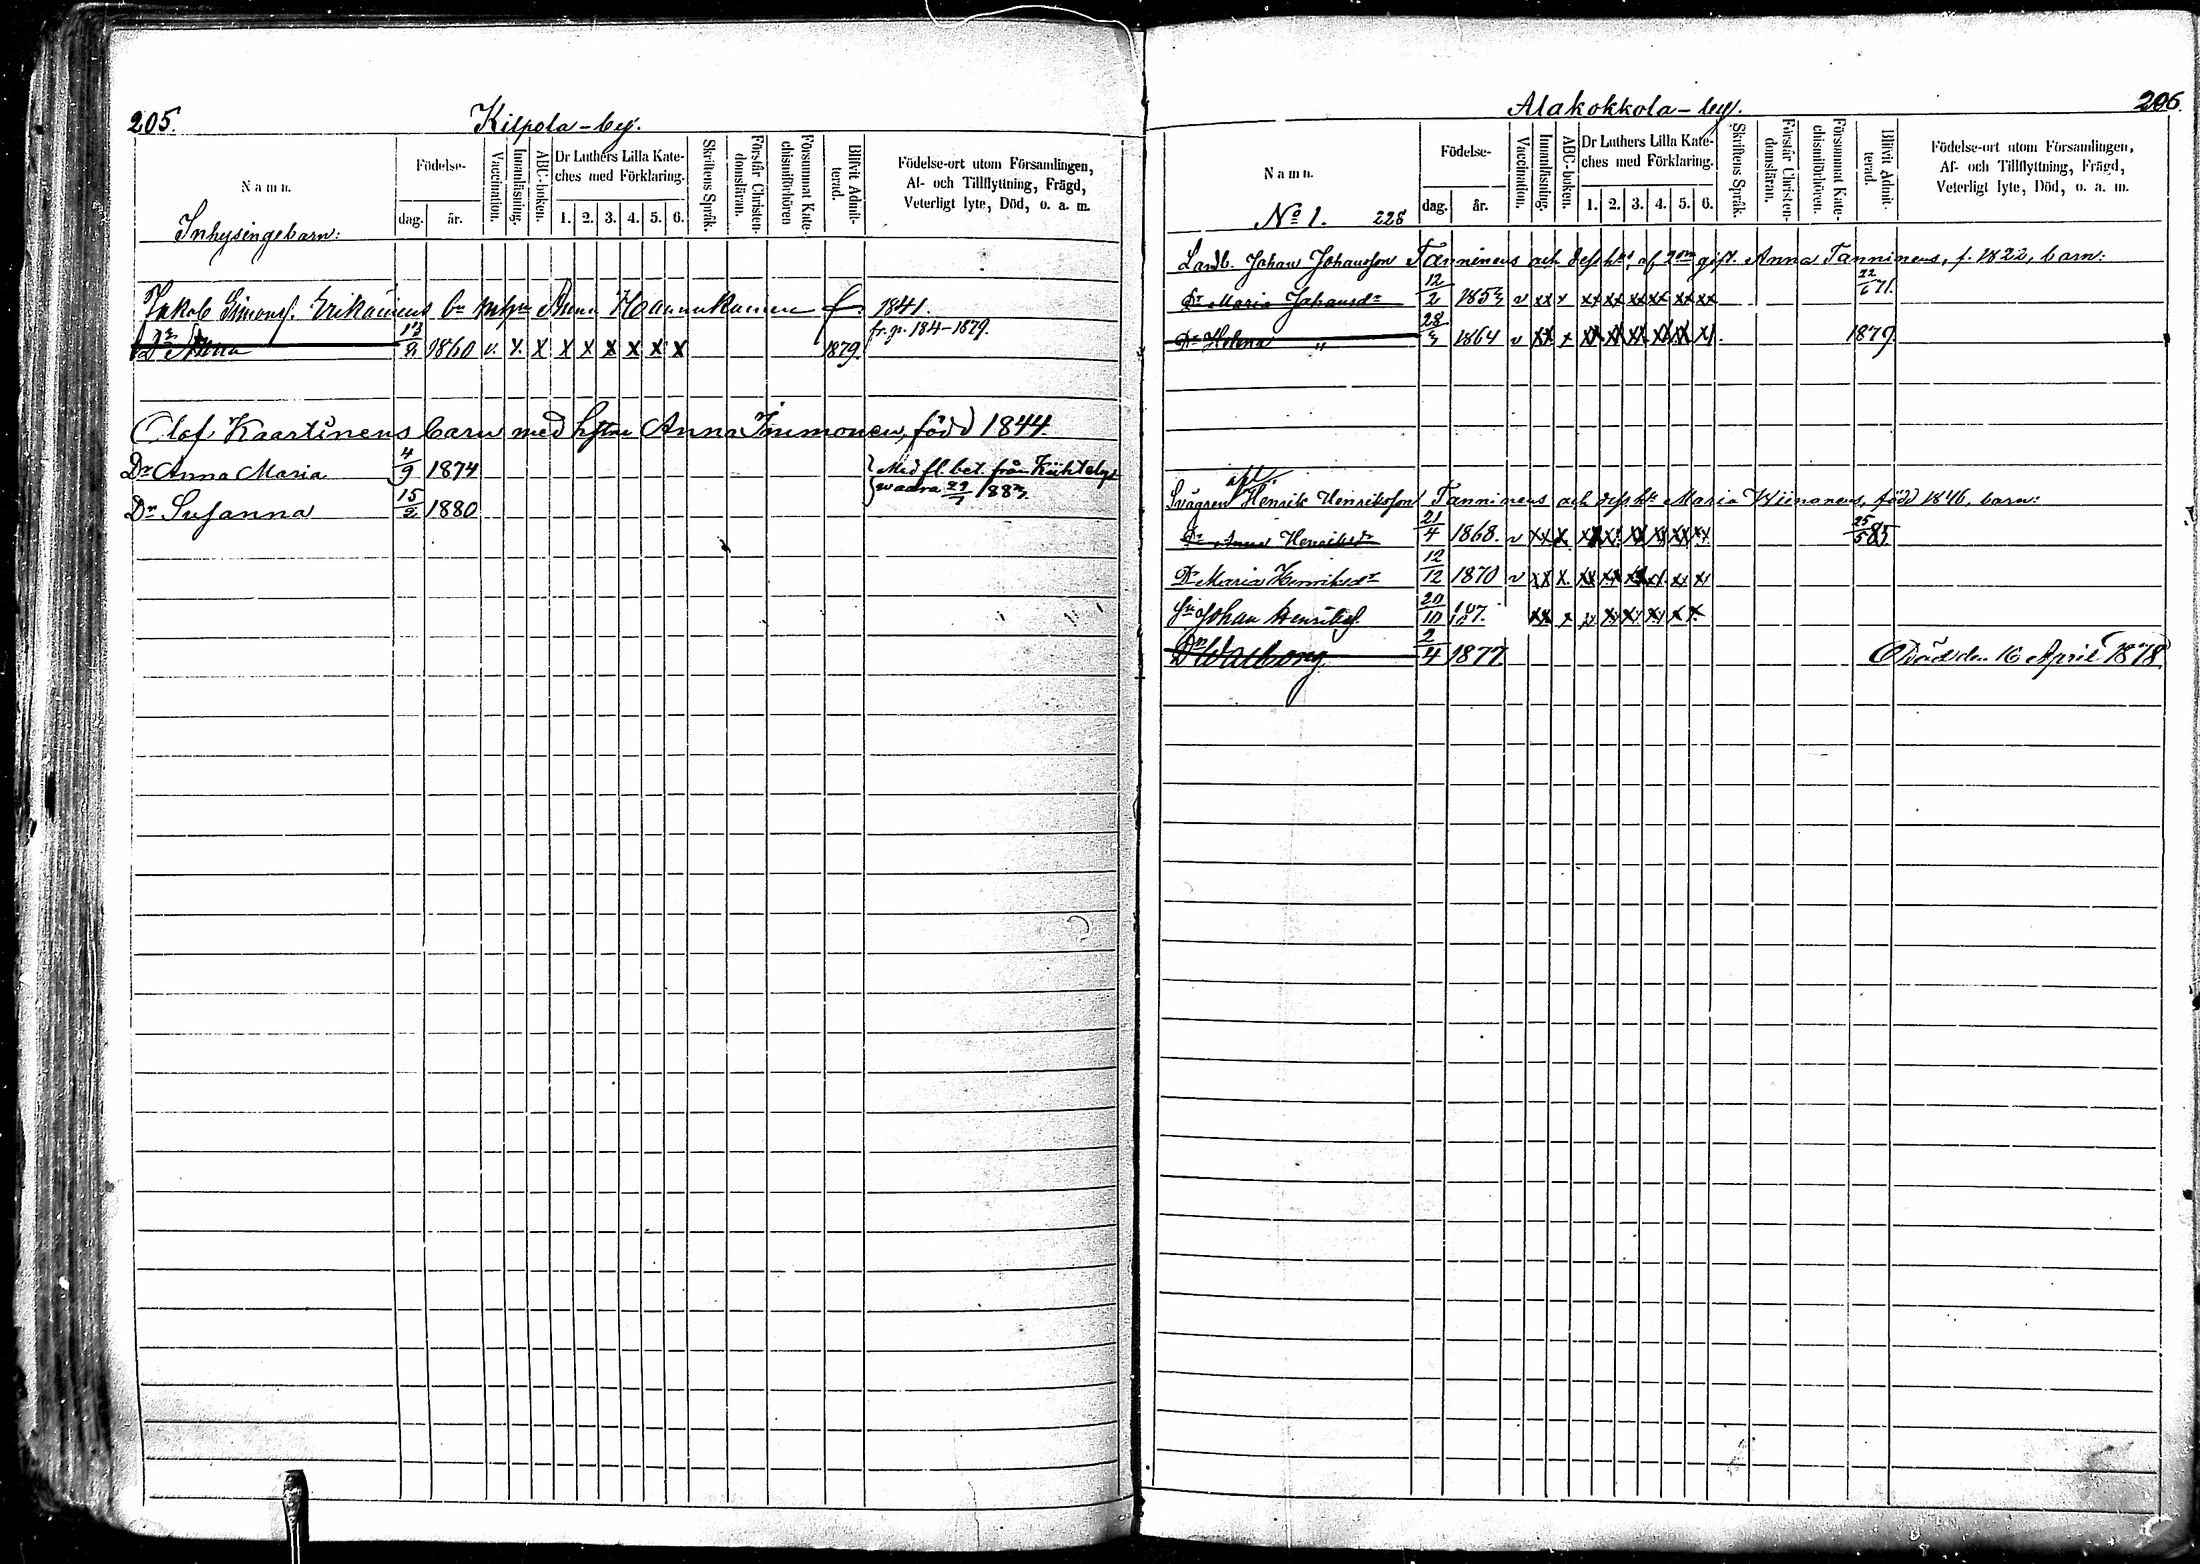 205.
Kilpola-by.
Namn.
Födelse-
dag.
år.
Vaccination.
Innanläsning.
ABC-boken.
Dr Luthers Lilla Kate-
ches med Förklaring.
1. 2. 3. 4. 5. 6.
Skriftens Språk.
Förstår Christen-
domsläran.
Försummat Kate-
chismiförhören
Blifvit Admit-
terad.
Födelse-ort utom Församlingen,
Af- och Tillflyttning, Frägd,
Veterligt lyte, Död, o. a. m.
Inhysingebarn:
Jakob Simonss. Erikäinens bn m hn Anna Haannukainen f. 1841.
Dr Anna 13/2 1860 v. x x x x x x x x 1879 fr. p. 184-1879.
Olof Kaartinens barn med hstru Anna Immonen, född 1844.
Dr Anna Maria 4/9 1874 Med fl. bet. från Kiihtelys-
waara 29/1 1883.
Dr Susanna 15/2 1880
206.
Alakokkola-by.
Namn.
Födelse-
dag.
år.
Vaccination.
Innanläsning.
ABC-boken.
Dr Luthers Lilla Kate-
ches med Förklaring.
1. 2. 3. 4. 5. 6.
Skriftens Språk.
Förstår Christen-
domsläran.
Försummat Kate-
chismiförhören.
Blifvit Admit-
terad.
Födelse-ort utom Församlingen,
Af- och Tillflyttning, Frägd,
Veterligt lyte, Död, o. a. m.
No 1. 228
Landb. Johan Johansson Tanninens och dess h., af 2om gift Anna Tanninens, f. 1822, barn:
Dr Maria Johansdr 12/2 v xx x xx xx xx xx xx xx 22/6 71.
Dr Helena " 28/3 1864 v xx x xx xx xx xx xx x 1879.
afl.
Svågren Henrik Henriksson Tanninens och dess h. Maria Wiinanens, född 1846, barn:
Dr Anna Henriksdr 21/4 1868. v xx x xx xx xx xx xx xx 25/5 85
Dr Maria Henriksdr 12/12 1870 v xx x xx xx xx xx xx xx
Sn Johan Henrikss. 20/10 xx x xx xx xx xx x x
Dr Walborg 2/4 1877 Död den 16 April 1878